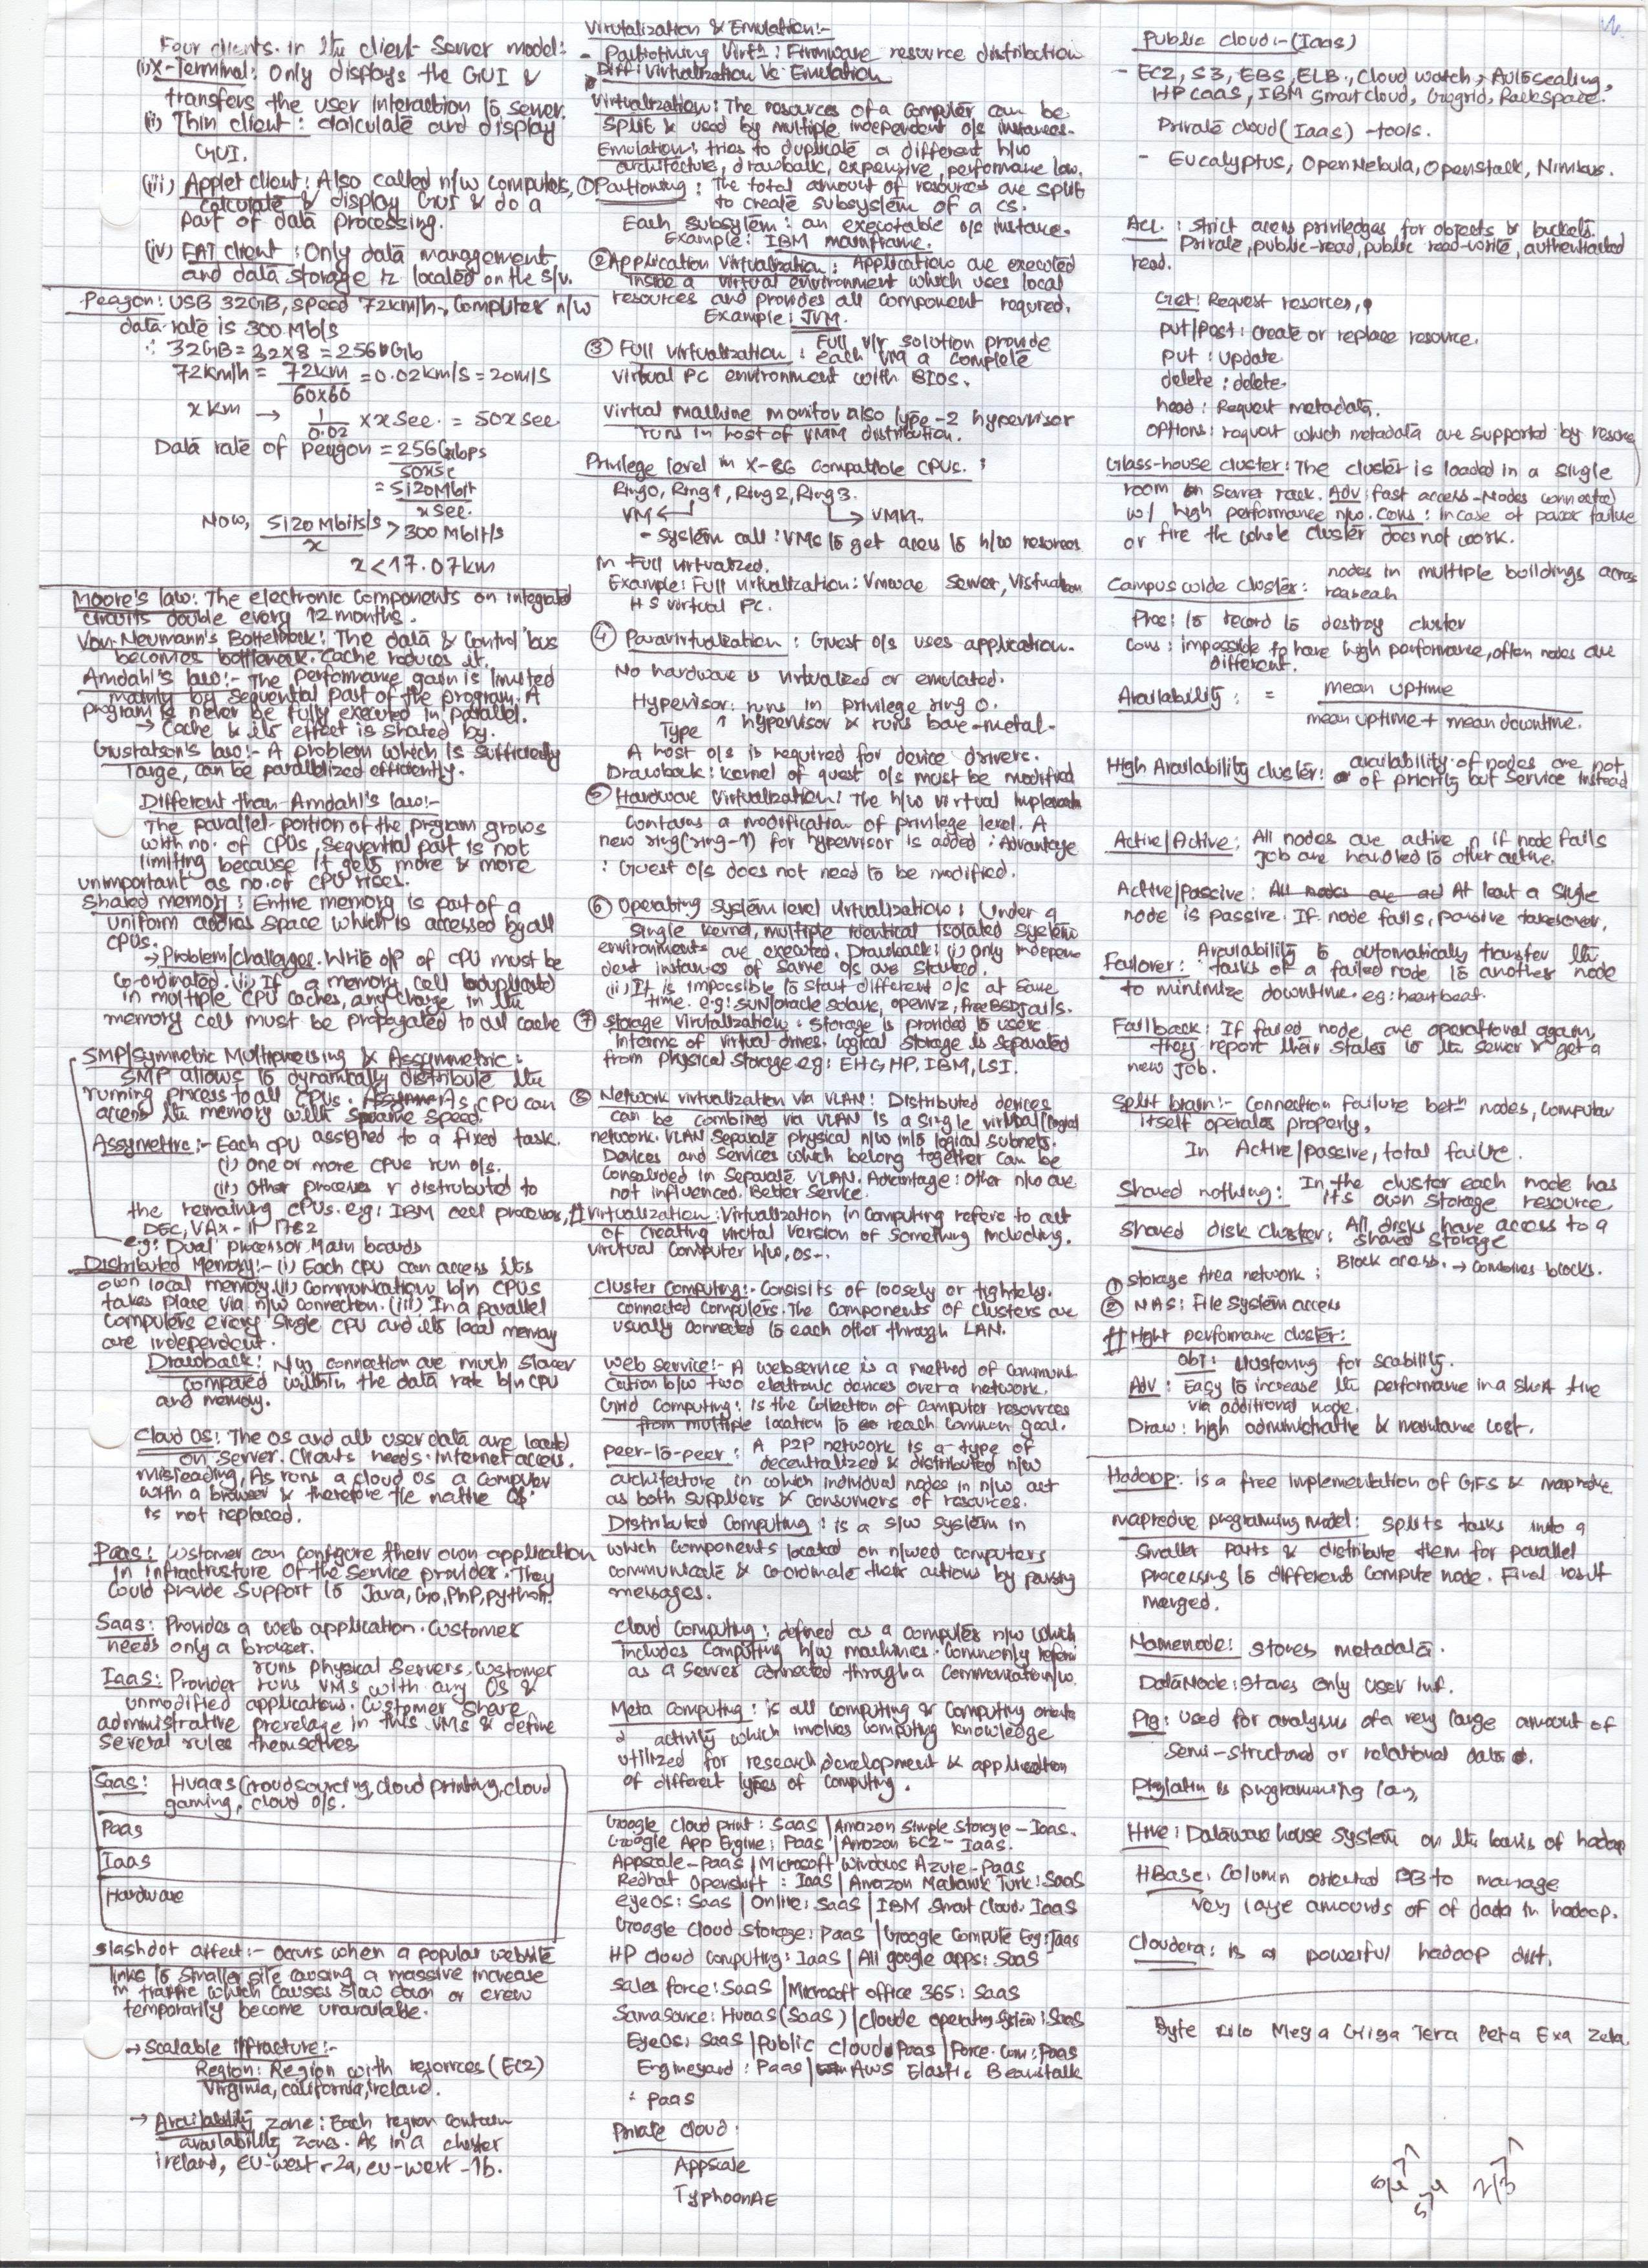 Four clients in the client-Server model:
(i) X-Terminal: Only displays the GUI &
transfers the user interaction to server.
(ii) Thin client: Calculate and display
GUI.
(iii) Applet client: Also called n/w computers,
calculate & display GUI & do a
part of data processing.
(iv) FAT client: Only data management
and data storage is located on the s/v.
Peagon: USB 32GB, speed 72km/h, computer n/w
data rate is 300 Mb/s
∴ 32GB = 32x8 = 256 Gb
72km/h = 72km / 60x60 = 0.02km/s = 20m/s
x km → 1/0.02 x x sec. = 50x sec
Data rate of peagon = 256Gbps / 50xsec
= 5120Mbit / x sec.
Now, 5120 Mbits/s / x > 300 Mbit/s
x < 17.07km
Moore's law: The electronic components on integrated
circuits double every 12 months.
Von-Neumann's Bottelneck: The data & control bus
becomes bottleneck. Cache reduces it.
Amdahl's law:- The performance gain is limited
mainly by sequential part of the program. A
program is never be fully executed in parallel.
→ Cache & its effect is shared by.
Gustafson's law:- A problem which is sufficiently
large, can be parallelized efficiently.
Different than Amdahl's law:-
The parallel portion of the program grows
with no. of CPUs, sequential part is not
limiting because it gets more & more
unimportant as no. of CPU rises.
Shared memory: Entire memory is part of a
uniform address space which is accessed by all
CPUs.
→ Problem/challenges. Write o/p of CPU must be
co-ordinated. (ii) If a memory cell duplicated
in multiple CPU caches, any change in the
memory cell must be propagated to all cache
SMP/Symmetric Multiprocessing & Assymmetric:
SMP allows to dynamically distribute the
running process to all CPUs. As CPU can
access the memory with same speed.
Assymettric:- Each CPU assigned to a fixed task.
(i) One or more CPUs run o/s.
(ii) Other processes r distributed to
the remaining CPUs. e.g: IBM cell processor,
DEC, VAX-11 1782
e.g: Dual processor Main boards
Distributed Memory:- (i) Each CPU can access its
own local memory. (ii) Communication b/n CPUs
takes place via n/w connection. (iii) In a parallel
computers every single CPU and its local memory
are independent.
Drawback: N/w connection are much slower
compared within the data rate b/n CPU
and memory.
Cloud OS: The OS and all user data are located
on server. Clients needs internet access.
misleading, As runs a cloud os a computer
with a browser & therefore the native OS
is not replaced.
Paas: Customer can configure their own application
in infrastructure of the service provider. They
could provide support to Java, Go, PhP, python.
Saas: Provides a web application. Customer
needs only a browser.
Iaas: Provider runs physical servers. Customer
runs VMs with any OS &
unmodified applications. Customer share
administrative prevelage in this VMs & define
several rules themselves
Saas: Huaas (croudsourcing, cloud printing, cloud
gaming, cloud o/s.
Paas
Iaas
Hardware
Slashdot affect:- Occurs when a popular website
links to smaller site causing a massive increase
in traffic which causes slow down or even
temporarily become unavailable.
→ Scalable
Region: Region with resorrces (EC2)
Virginia, california, ireland.
→ Availability zone: Each region contain
availability zones. As in a cluster
ireland, eu-west-2a, eu-west-1b.
Virutalization & Emulation:-
- Partitioning Virtn: Firmware resource distribution
Diff: Virtualization Vs Emulation
Virtualization: The resources of a computer can be
split & used by multiple independent o/s instances.
Emulation: tries to duplicate a different h/w
architecture, drawback, expensive, performance low.
① Partioning: The total amount of resources are split
to create subsystem of a cs.
Each subsystem: an executable o/s instance.
Example: IBM mainframe.
② Application Virtualization: Applications are executed
inside a virtual environment which uses local
resources and provides all component requred.
Example: JVM.
③ Full virtualization: Full vir solution provide
each vm a complete
virtual PC environment with BIOS.
Virtual machine monitor also type-2 hypervisor
runs in host of VMM distribution.
Privilege level in X-86 compatible CPUs. :
Ring0, Ring1, Ring2, Ring3.
VM ← → VMM.
- System call: VMs to get acess to h/w resorces
in Full virtualized.
Example: Full virtualization: Vmwae server,
MS virtual PC.
④ Paravirtualization: Guest o/s uses application.
No hardware is virtualized or emulated.
Hypervisor: runs in privilege ring 0.
Type 1 hypervisor & runs bare-metal.
A host o/s is required for device drivers.
Drawback: Kernel of guest o/s must be modified
⑤ Hardware Virtualization: The h/w virtual
contains a modification of privilege level. A
new ring(ring-1) for hypervisor is added: Advantage
: Guest o/s does not need to be modified.
⑥ Operating System level virtualization: Under a
single kernel, multiple identical isolated system
environments are executed. Drawback: (i) only indepen
dent instances of same o/s are started.
(ii) It is impossible to start different o/s at same
time. e.g: SUN/oracle solaris, openvz, freeBSD Jails.
⑦ Storage Virutalization: Storage is provided to users
interms of virtual drives. Logical storage is separated
from physical storage e.g: EMC, HP, IBM, LSI.
⑧ Network virtualization via VLAN: Distributed devices
can be combined via VLAN is a single virtual/logical
network. VLAN separate physical n/w into logical subnets.
Devices and services which belong together can be
consolided in separate VLAN. Advantage: Other n/w are
not influenced. Better service.
# Virtualization: Virtualization in computing refers to act
of creating virutal version of something including.
virutual computer h/w, os-.
Cluster Computing:- Consisits of loosely or tightely.
connected computers. The components of clusters are
usually connected to each other through LAN.
Web service:- A webservice is a method of commun
cation b/w two electronic devices over a network.
Grid Computing: is the collection of computer resorrces
from multiple location to reach common goal.
peer-to-peer: A P2P network is a type of
decentralized & distributed n/w
architeture in which individual nodes in n/w act
as both suppliers & consumers of resources.
Distributed Computing: is a s/w system in
which components located on n/wed computers
communicate & co-ordinate their actions by passing
messages.
Cloud Computing: defined as a computer n/w which
includes computing h/w machines. Commonly refered
as a server connected through a communication n/w.
Meta Computing: is all computing & computing oriented
activity which involves computing knowledge
utilized for research development & application
of different types of computing.
Google cloud print: SaaS | Amazon simple storage - Iaas.
Google App Engine: Paas | Amozon EC2 - Iaas.
Appscale-Paas | Microsoft Windows Azure-Paas
Redhat Openshift: IaaS | Amazon Mechanik Turk: SaaS
eyeOS: SaaS | Online: SaaS | IBM Smart Cloud: IaaS
Google Cloud Storage: PaaS | Google Compute Eng: Iaas
HP Cloud Computing: IaaS | All google apps: SaaS
Sales force: SaaS | Microsoft office 365: SaaS
Samasource: Huaas (SaaS) | cloude operating System: SaaS
EyeOS: SaaS | Public Cloud: Paas | Force.com: Paas
Engineyard: Paas | AWS Elastic Beanstalk
: Paas
Private Cloud:
Appscale
TyphoonAE
Public Cloud:-(IaaS)
- EC2, S3, EBS, ELB, Cloud watch, Autoscaling,
HP caas, IBM Smartcloud, Gogrid, RackSpace.
Private cloud(Iaas) -tools.
- Eucalyptus, OpenNebula, Openstack, Nimbus.
ACL: strict acess priviledges for objects & buckets.
Private, public-read, public read-write, authenticated
read.
Get: Request resorces,
put/Post: create or replace resource.
put: update
delete: delete.
head: Request metadata.
Options: requst which metadata are supported by resorce
Glass-house cluster: The cluster is loaded in a single
room on server rack. Adv: fast access-Nodes connected
w/ high performance n/w. Cons: In case of power failure
or fire the whole cluster does not work.
Campus wide cluster: nodes in multiple buildings across
reaseach
Pros: to record to destroy cluster
Cons: impossible to have high performance, often nodes are
different.
Availability: = mean uptime
mean uptime + mean downtime.
High Availability cluster: availability of nodes are not
of priority but service instead
Active/Active: All nodes are active n if node fails
Job are handled to other active.
Active/passive: At least a single
node is passive. If node fails, passive takesover.
Failover: Availability to automatically transfer the
tasks of a failed node to another node
to minimize downtime. eg: heartbeat.
Failback: If failed node are operational again,
they report their states to the server & get a
new job.
Split brain:- Connection failure betn nodes, computer
itself operates properly.
In Active/passive, total failure.
Shared nothing: In the cluster each node has
it's own storage resource
Shared disk cluster: All disks have access to a
shared storage
① Storage Area network: Block access. → Combines blocks.
② NAS: File system access
# Hight performance cluster:
obj: clustering for scability.
Adv: Easy to increase the performance in a short time
via additional node.
Draw: high administrative & mentance cost.
Hadoop: is a free implementation of GFS & mapredue
mapredue programing model: splits tasks into a
smaller parts & distribute them for parallel
processing to different compute node. Final result
merged.
Namenode: stores metadata.
DataNode: Stores only user inf.
Pig: used for analysis of a very large amount of
Semi-structured or relational data.
Piglatin is programming lan,
Hive: Dataware house system on the basis of hadoop
HBase: Column oriented DB to manage
very large amounts of of dada in hadoop.
Cloudera: is a powerful hadoop dist.
Byte Kilo Mega Giga Tera Peta Exa Zeta